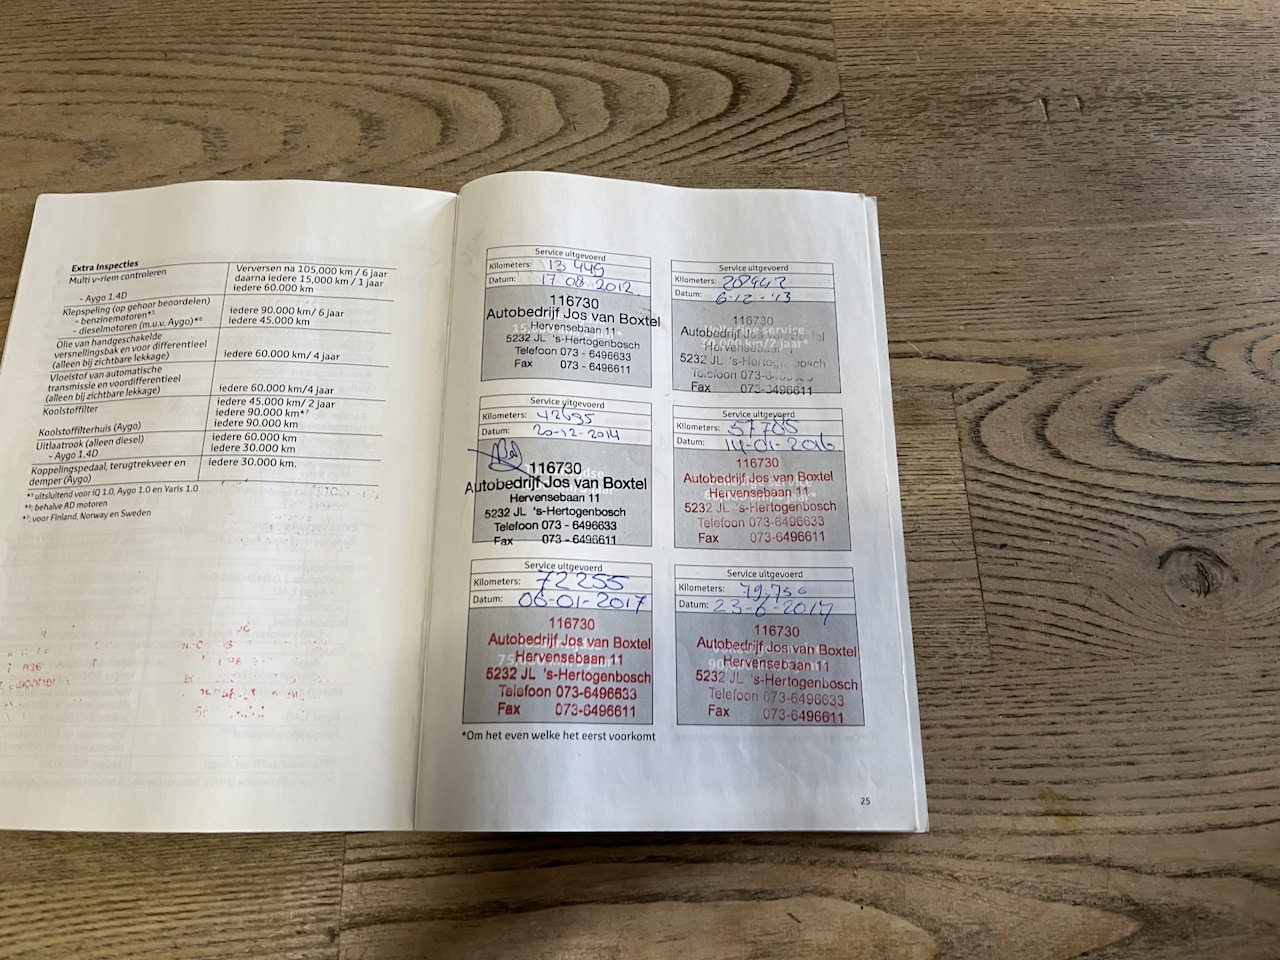 Extra Inspecties
Multi v-riem controleren
- Aygo 1.4D
Verversen na 105,000 km / 6 jaar
daarna iedere 15,000 km / 1 jaar
iedere 60.000 km
Klepspeling (op gehoor beoordelen)
- benzinemotoren*⁵
- dieselmotoren (m.u.v. Aygo)*⁶
iedere 90.000 km / 6 jaar
iedere 45.000 km
Olie van handgeschakelde
versnellingsbak en voor differentieel
(alleen bij zichtbare lekkage)
iedere 60.000 km / 4 jaar
Vloeistof van automatische
transmissie en voordifferentieel
(alleen bij zichtbare lekkage)
iedere 60.000 km/4 jaar
Koolstoffilter
Koolstoffilterhuis (Aygo)
iedere 45.000 km/ 2 jaar
iedere 90.000 km*⁷
iedere 90.000 km
Uitlaatrook (alleen diesel)
- Aygo 1.4D
iedere 60.000 km
iedere 30.000 km
Koppelingspedaal, terugtrekveer en
demper (Aygo)
iedere 30.000 km.
*⁵ uitsluitend voor iQ 1.0, Aygo 1.0 en Yaris 1.0
*⁶: behalve AD motoren
*⁷: voor Finland, Norway en Sweden
Service uitgevoerd
Kilometers: 13449
Datum: 17 08 2012.
116730
Autobedrijf Jos van Boxtel
Hervensebaan 11
5232 JL 's-Hertogenbosch
Telefoon 073 - 6496633
Fax 073 - 6496611
Service uitgevoerd
Kilometers: 28942
Datum: 6-12-'13
Volledige service
30.000 km/2 jaar*
116730
Autobedrijf Jos
Hervensebaan
5232 JL 's-Hertog
Telefoon
Fax 073-6496611
Service uitgevoerd
Kilometers: 42695
Datum: 20-12-2014
116730
Autobedrijf Jos van Boxtel
Hervensebaan 11
5232 JL 's-Hertogenbosch
Telefoon 073 - 6496633
Fax 073 - 6496611
Service uitgevoerd
Kilometers: 57785
Datum: 14-01-2016
116730
Autobedrijf Jos van Boxtel
Hervensebaan 11
5232 JL 's-Hertogenbosch
Telefoon 073-6496633
Fax 073-6496611
Service uitgevoerd
Kilometers: 72255
Datum: 06-01-2017
116730
Autobedrijf Jos van Boxtel
Hervensebaan 11
5232 JL 's-Hertogenbosch
Telefoon 073-6496633
Fax 073-6496611
Service uitgevoerd
Kilometers: 79.756
Datum: 23-6-2017
116730
Autobedrijf Jos van Boxtel
Hervensebaan 11
5232 JL 's-Hertogenbosch
Telefoon 073-6496633
Fax 073-6496611
*Om het even welke het eerst voorkomt
25